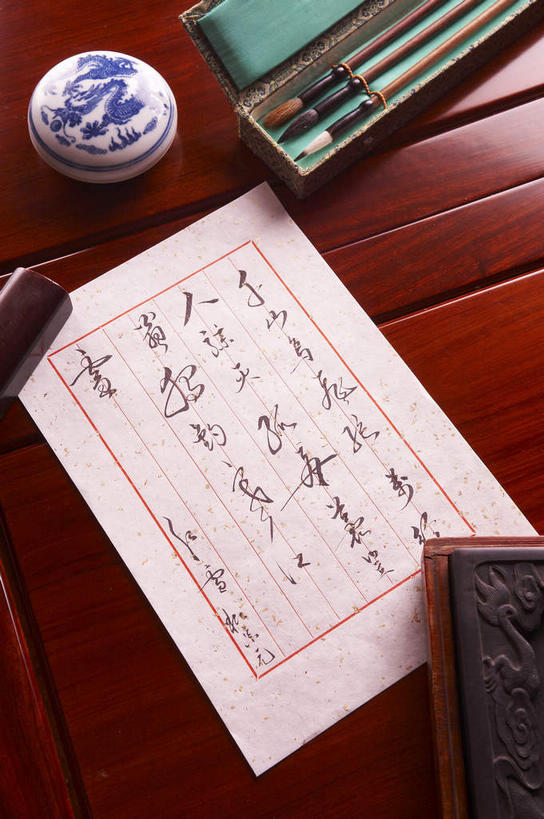 千山鳥飛絕萬徑
人踪灭孤舟蓑笠
翁獨釣寒江
雪 江雪 柳宗元